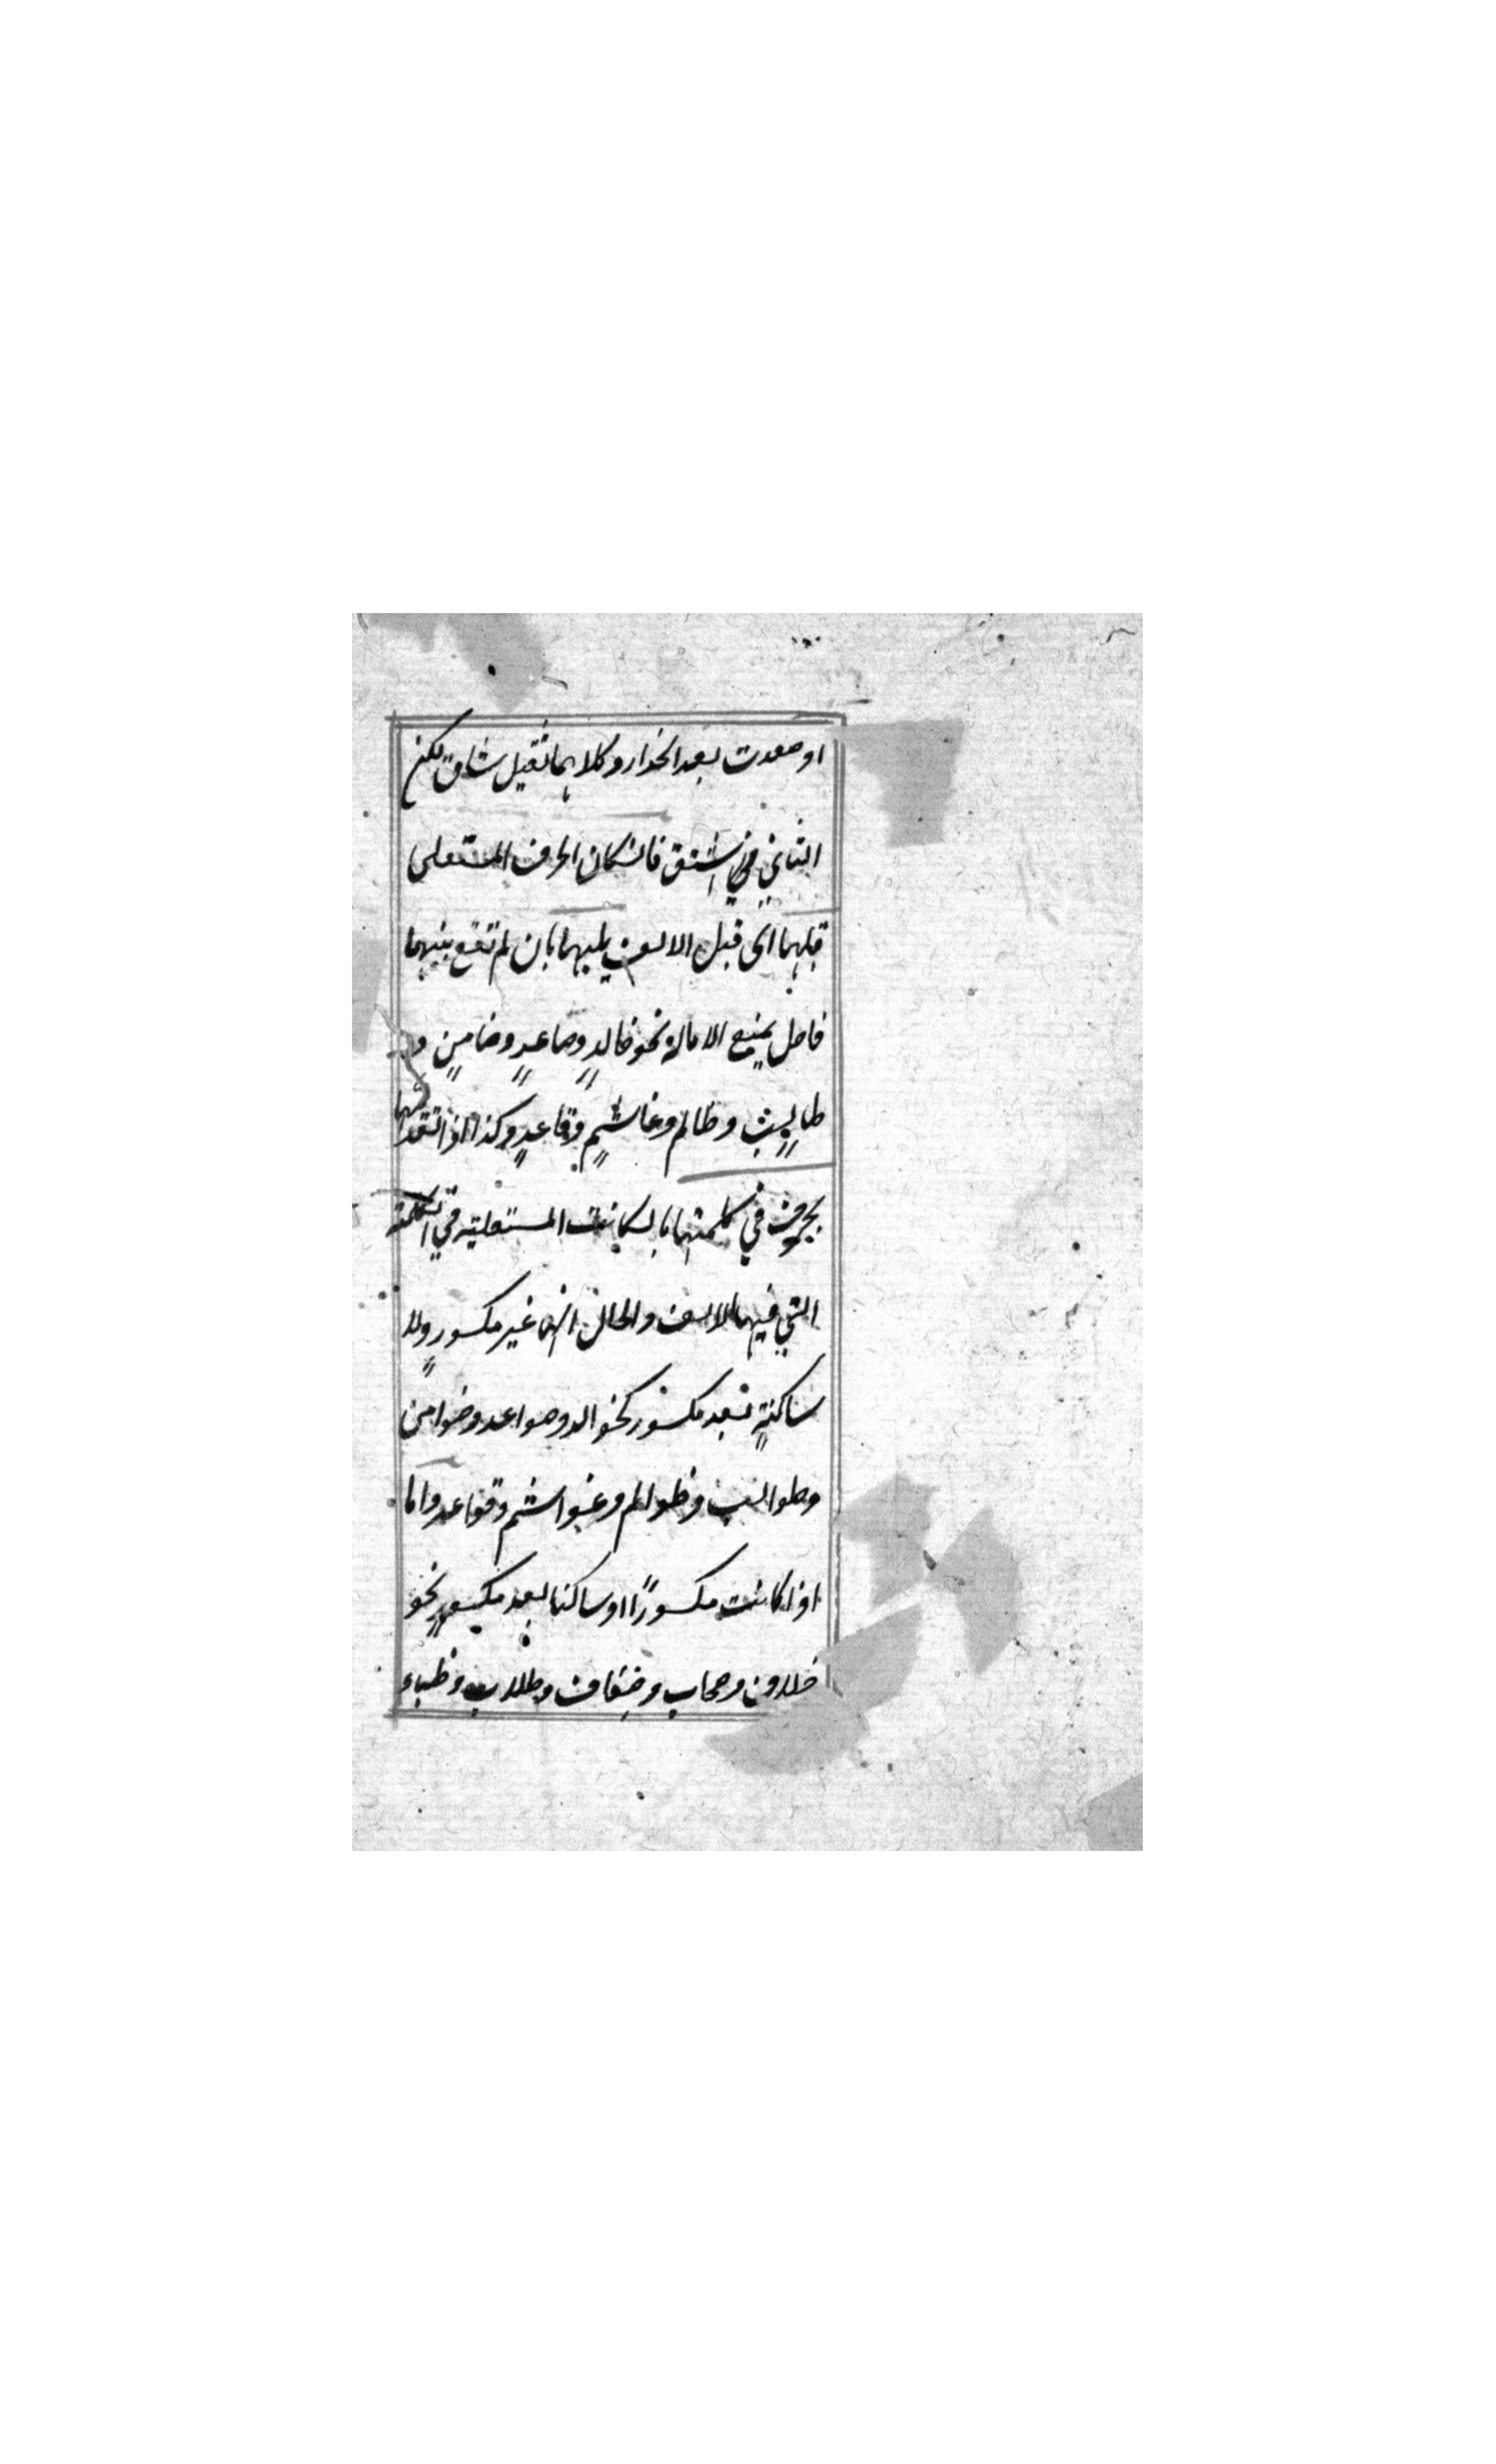 او صعدت بعد انحدار وكلاهما ثقيل شاق لكن
الثاني اشق فان كان الحرف المستعلي
قبلها اى قبل الالف يليها بان لم تقع بينهما
فاصل يمنع الامالة نحو خالدٍ وصاعدٍ وضامنٍ و
طالبٍ وظالم وغاشمٍ وقاعدٍ وكذا اذا تقدمها
بحرف في كلمتها بان كانت المستعلية في الكلمة
التي فيها الالف والحال انها غير مكسورٍ ولا
ساكنةٍ بعد مكسور كخوالد وصواعد وضوامن
وطوالب وظوالم وغواشم وقواعد واما
اذا كانت مكسورًا او ساكنا بعد مكسورٍ نحو
خلاف وصحاب وضعاف وطلاب وظباء